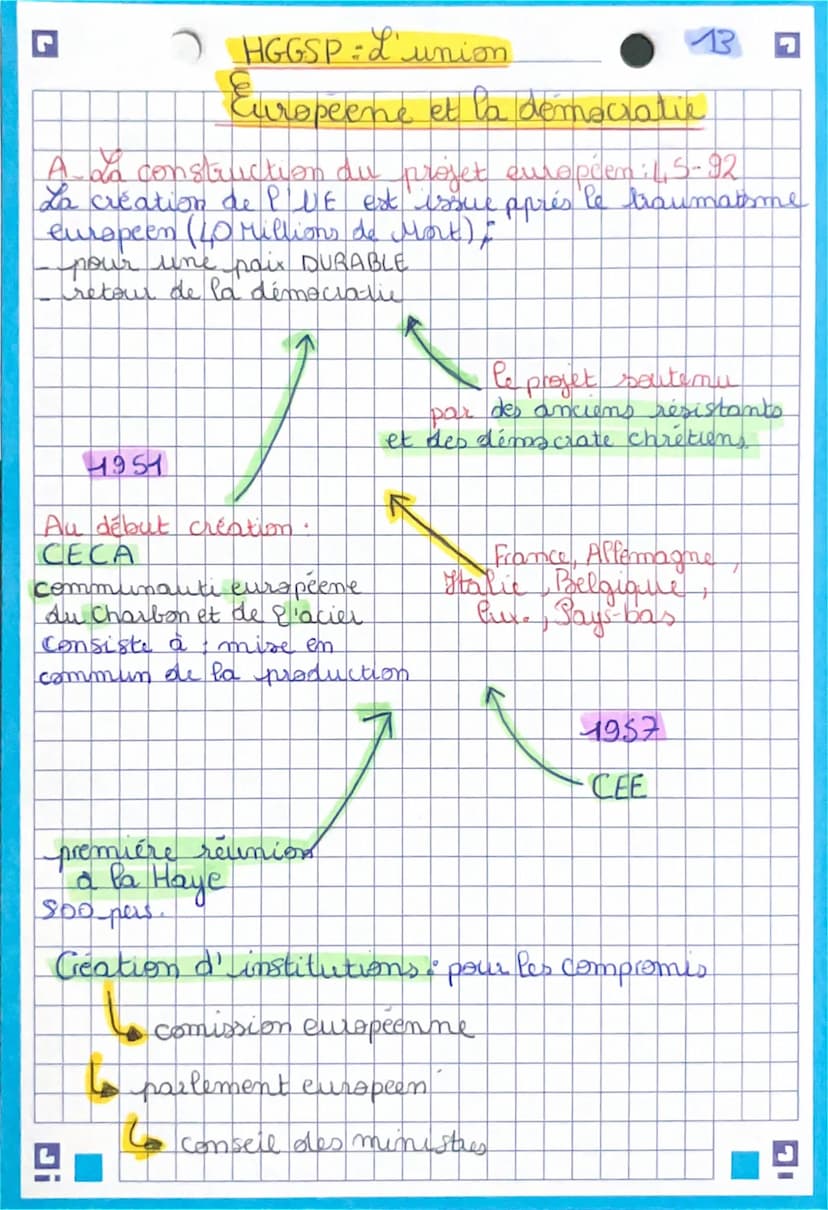 13
HGGSP : L'union
Européene et la démocratie
A - La construction du projet européen : 45-92
La création de l'UE est issue après le traumatisme
européen (40 Millions de Mort) ;
- pour une paix DURABLE
- retour de la démocratie
le projet soutenu
par des anciens résistants
et des démocrate chrétiens
1951
Au début création :
CECA
communauti européene
du Charbon et de l'acier
Consiste à : mise en
commun de la production
France, Allemagne,
Italie, Belgique,
Lux., Pays-bas
1957
CEE
première réunion
à la Haye
800 pers.
Création d'institutions : pour les compromis
comission européenne
parlement européen
conseil des ministres